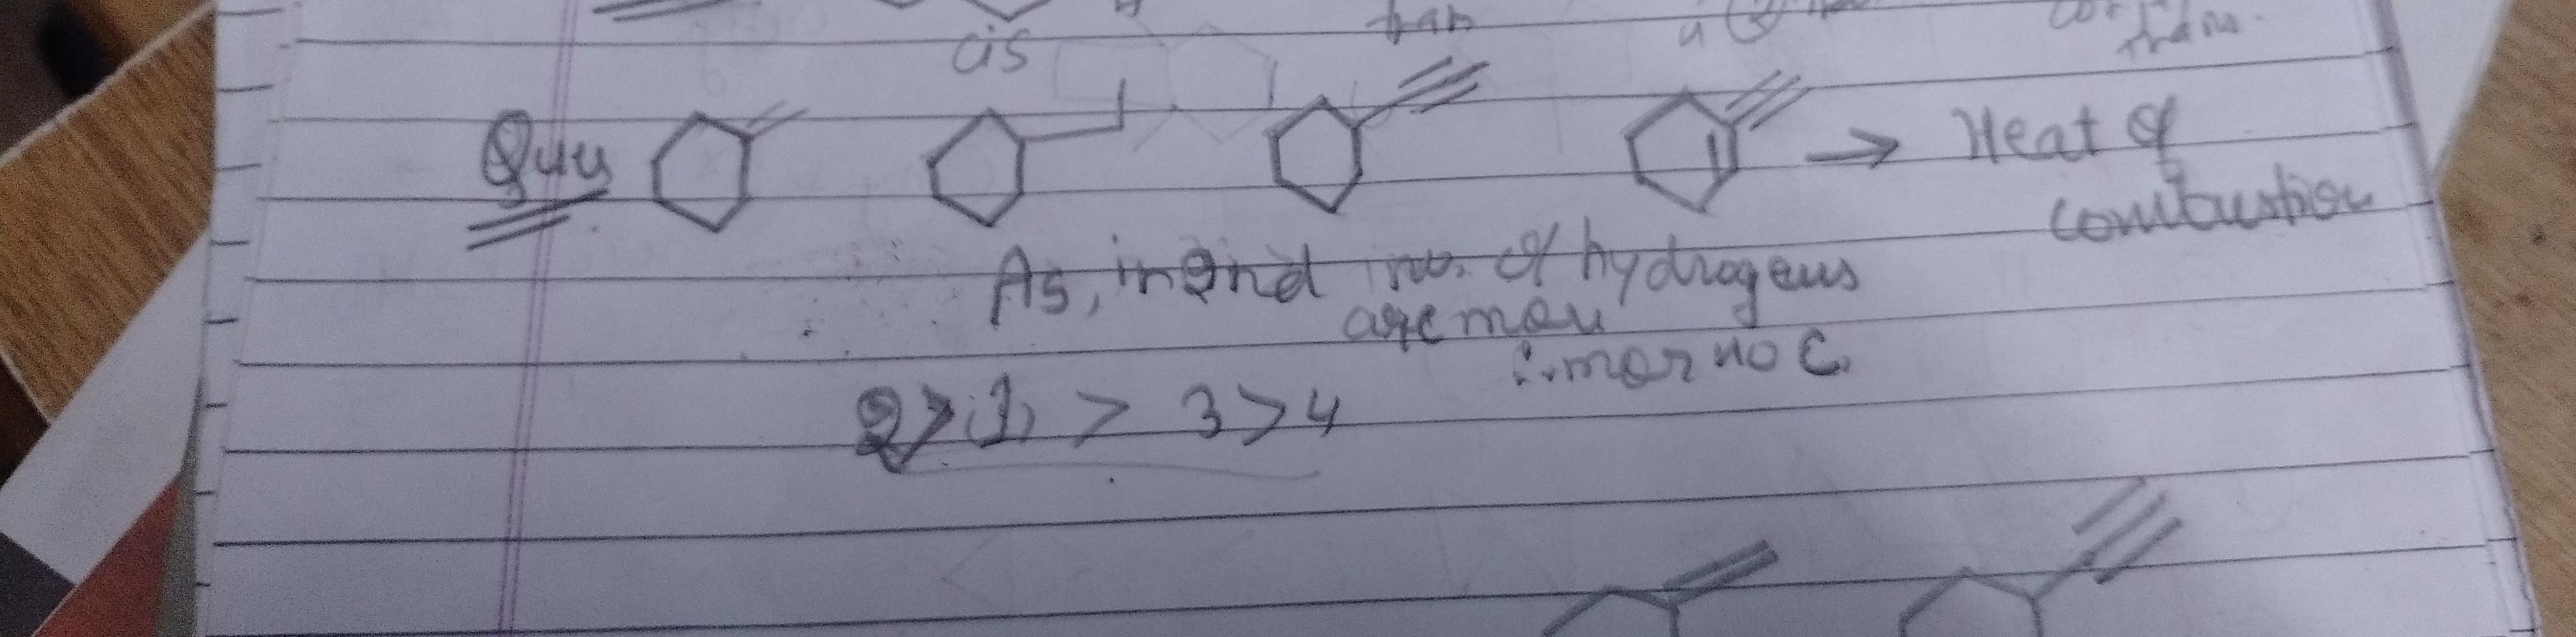 cis
tran
trans.
Ques
→ Heat of
combustion
As, in 2nd no. of hydrogens
are more
∴ more no C.
2 > (1) > 3 > 4